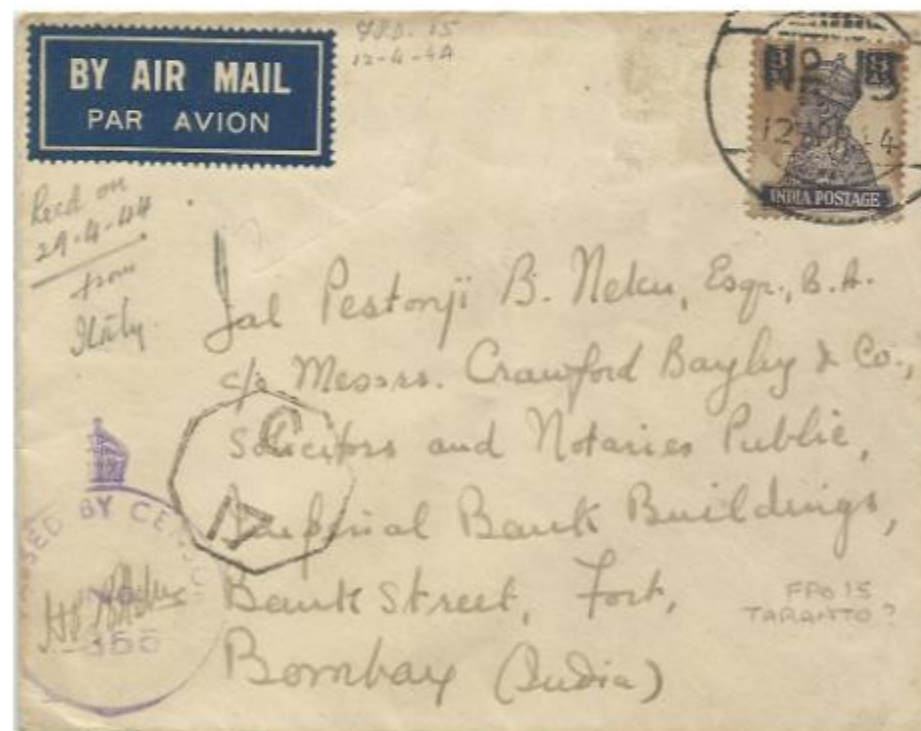 BY AIR MAIL
PAR AVION
12-4-44
No 15
12 APR 44
INDIA POSTAGE
Recd on
29-4-44
from
Italy.
Jal Pestonji B. Neku, Esqr., B.A.
c/o Messrs. Crawford Bayley & Co.,
Solicitors and Notaries Public,
Imperial Bank Buildings,
Bank Street, Fort,
Bombay (India)
C
17
SED BY CENSO
FPO 15
TARANTO?